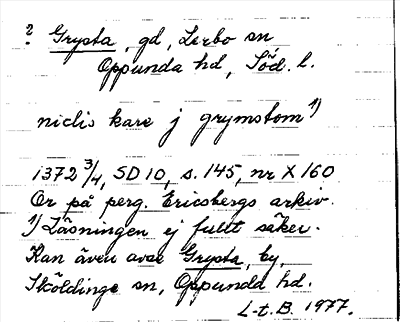 ? Grysta, gd, Lerbo sn
Oppunda hd, Söd. l.
niclis kare j grymstom 1)
1372 3/4, SD 10, s. 145, nr X 160
Or på perg. Ericsbergs arkiv.
1) Läsningen ej fullt säker.
Kan även avse Grysta, by,
Sköldinge sn, Oppunda hd.
L-t. B. 1977.